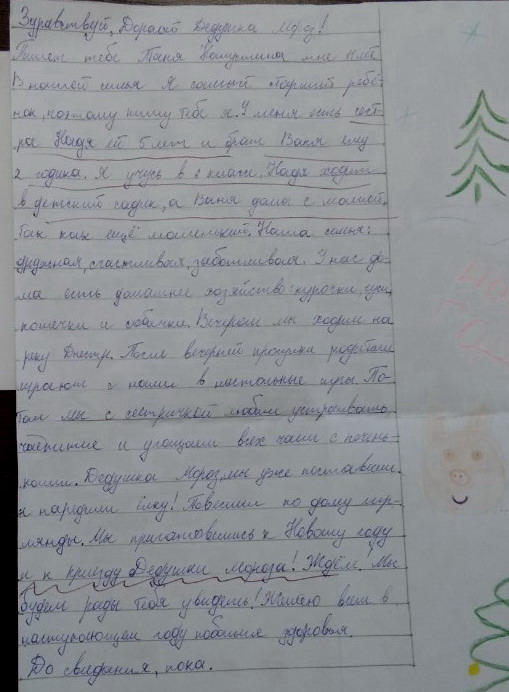 Здравствуй, Дорогой Дедушка Мороз!
Пишет тебе Таня мне лет
В нашей семье Я самый старший ребё-
нок, поэтому пишу тебе я. У меня есть сест-
ра Надя ей 5 лет и брат Ваня ему
2 годика. Я учусь в классе. Надя ходит
в детский садик, а Ваня дома с мамой,
так как ещё маленький. Наша семья:
дружная, счастливая, заботливая. У нас до-
ма есть домашнее хозяйство: курочки,
кошечки и собачки. Вечером мы ходим на
реку Днестр. После вечерней прогулки родители
играют с нами в настольные игры. По-
том мы с сестричкой любим устраивать
чаепитие и угощаем всех чаем с печень-
ками. Дедушка Мороз, мы уже поставили
и нарядили ёлку! Повесили по дому гир-
лянды. Мы приготовились к Новому году
и к приезду Дедушки Мороза! Ждём. Мы
будем рады тебя увидеть! Желаю всем в
наступающем году побольше здоровья.
До свидания, пока.